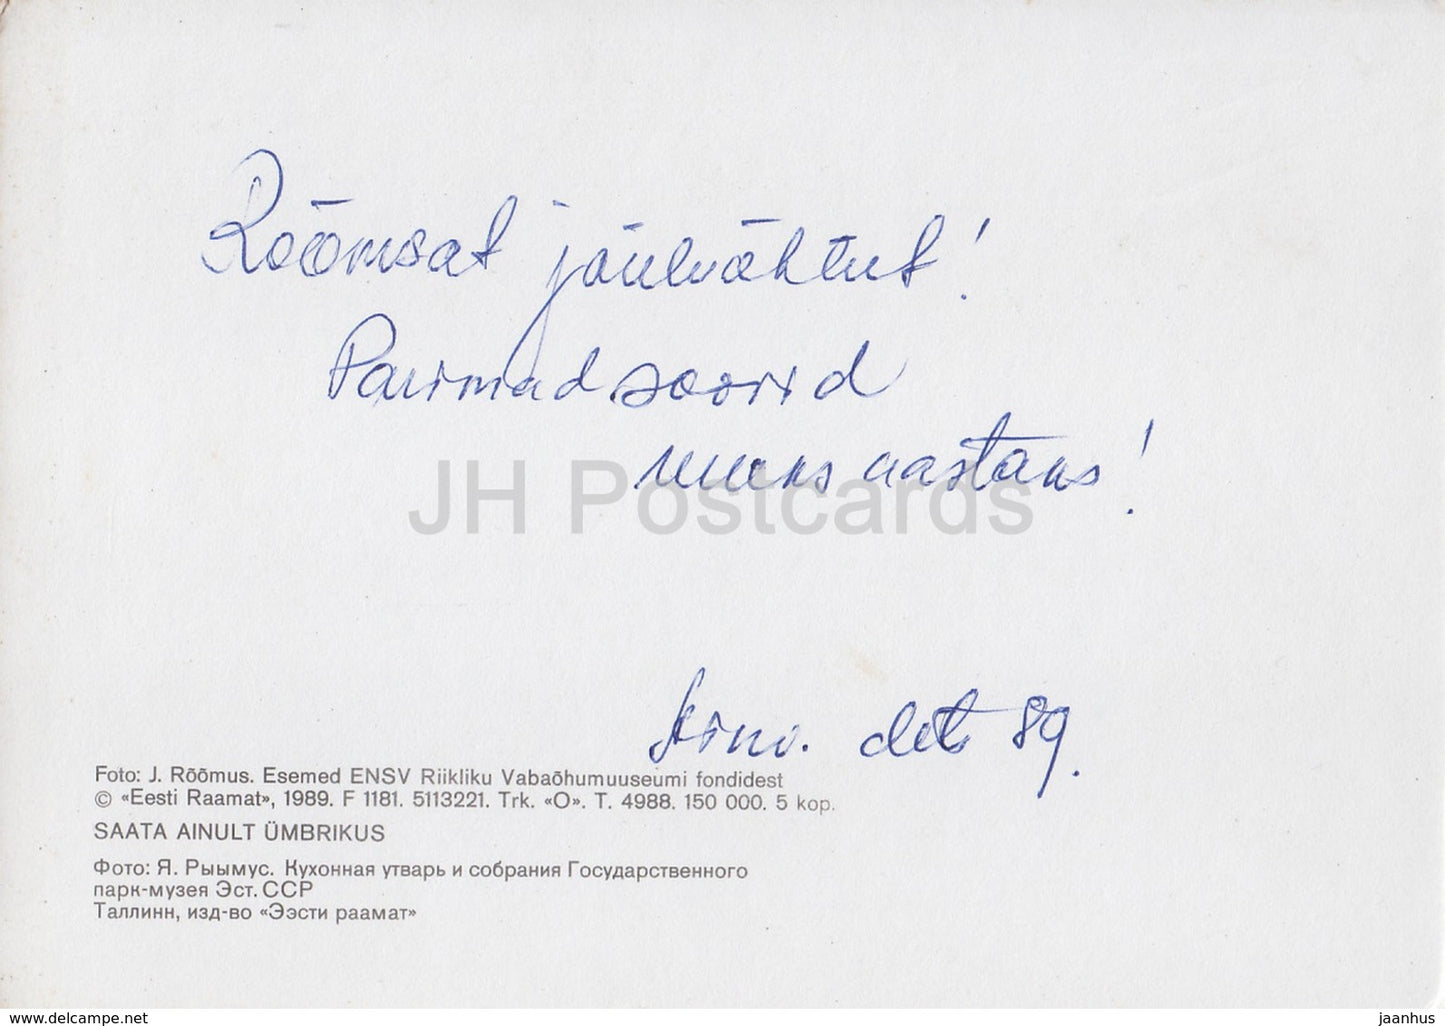 Rõõmsat jõuluõhtut!
Parimad soovid
uueks aastaks!
JH Postcards
dets 89.
Foto: J. Rõõmus. Esemed ENSV Riikliku Vabaõhumuuseumi fondidest
© «Eesti Raamat», 1989. F 1181. 5113221. Trk. «O». T. 4988. 150 000. 5 kop.
SAATA AINULT ÜMBRIKUS
Фото: Я. Рыымус. Кухонная утварь и собрания Государственного
парк-музея Эст. ССР
Таллинн, изд-во «Ээсти раамат»
www.delcampe.net
jaanhus